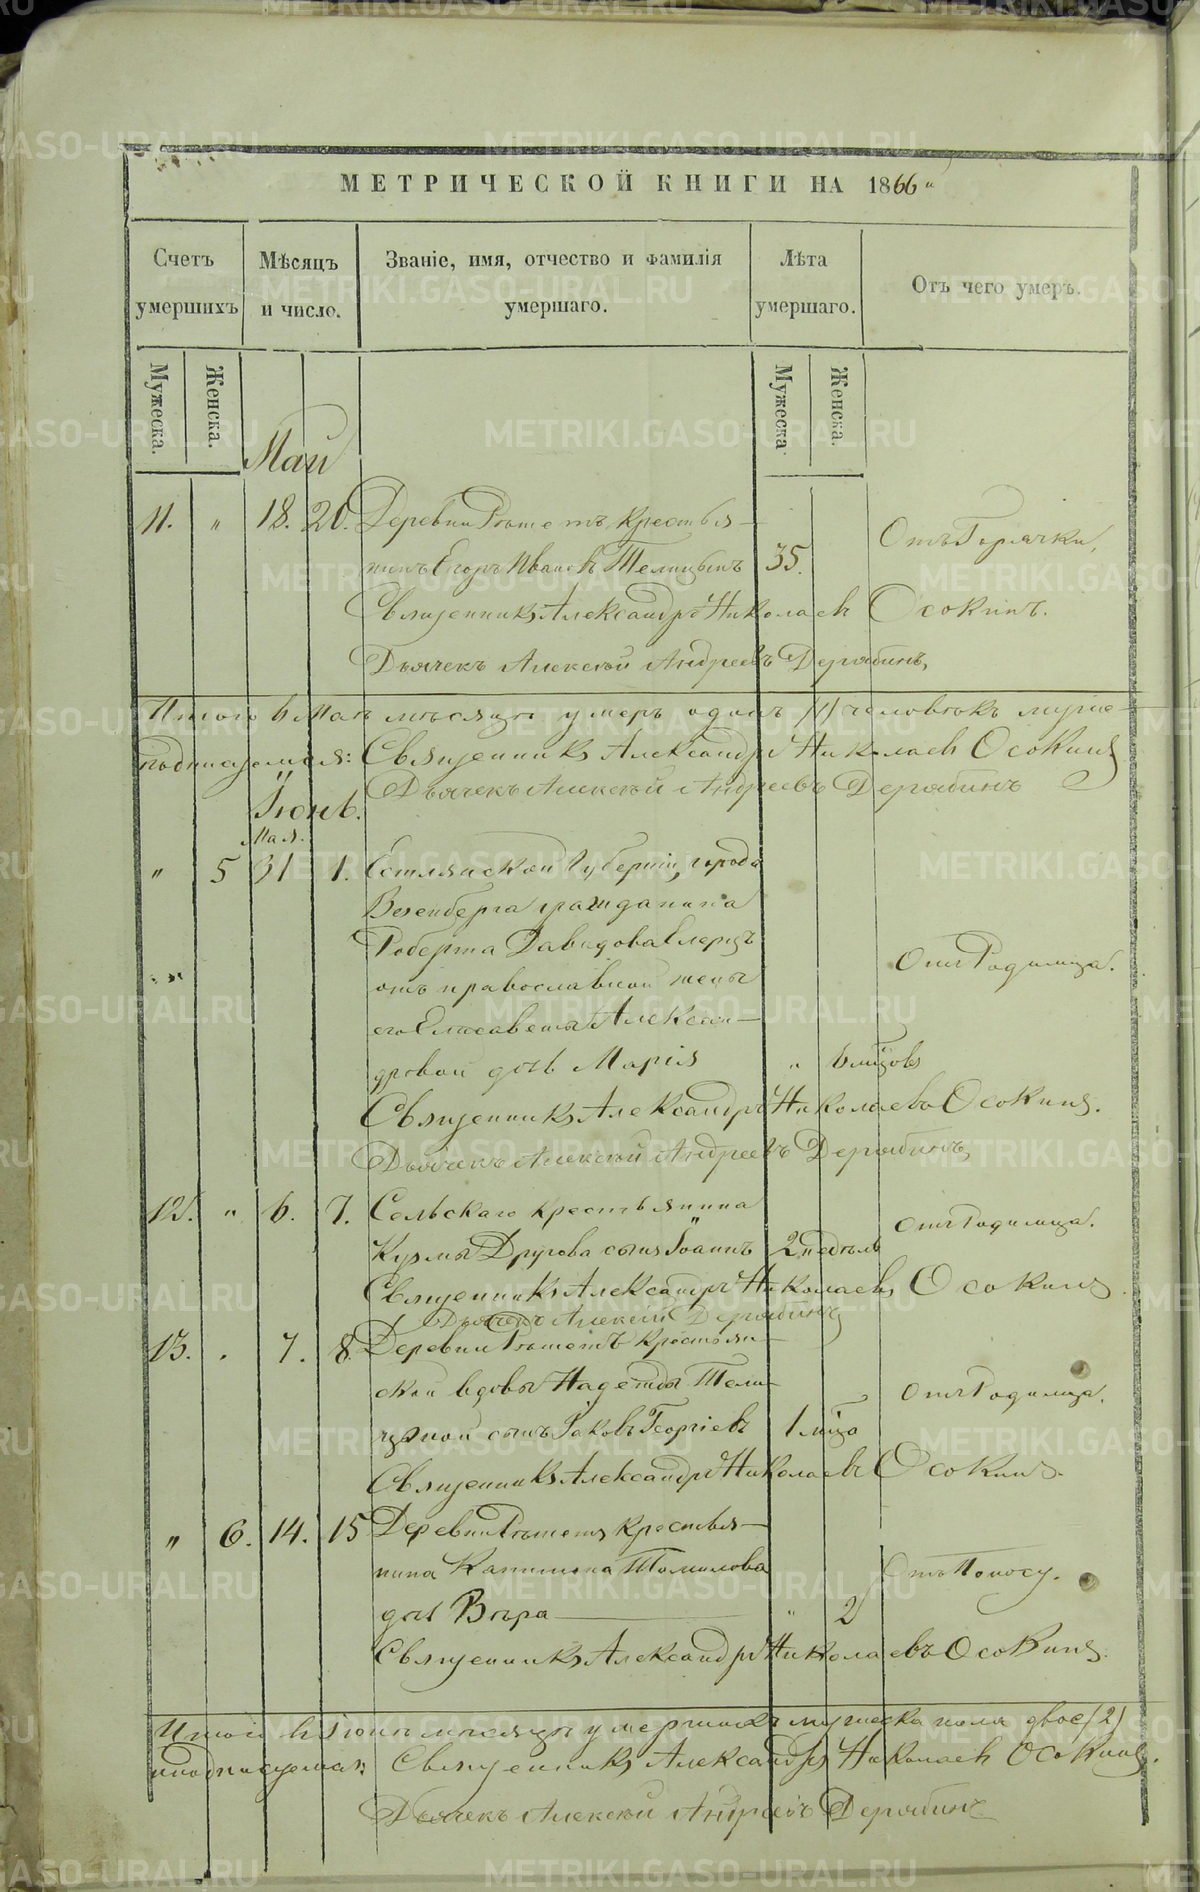 МЕТРИЧЕСКОЙ КНИГИ НА 1866
Счетъ умершихъ
Мѣсяцъ и число.
Званіе, имя, отчество и фамилія умершаго.
Лѣта умершаго.
Отъ чего умеръ.
Мужеска.
Женска.
Мужеска
Женска.
Май
11. " 18. 20. Деревни Рѣшетъ крестья-
нинъ Егоръ Ивановъ Телицынъ 35. Отъ Горячки,
Священникъ Александръ Николаевъ Осокинъ.
Дьячекъ Алексѣй Андреевъ Дерябинъ,
Итого въ Маѣ мѣсяцѣ умеръ одинъ (1) человѣкъ
подписуемся: Священникъ Александръ Николаевъ Осокинъ
Дьячекъ Алексѣй Андреевъ Дерябинъ
Іюнь.
Мая.
" 5 31 1. Естлянской Губерніи, города
Везенберга гражданина
Роберта Давидова
отъ православной жены Отъ Родимца.
его Елисаветы Алексан-
дровой дочь Марія " 6 мѣцовъ
Священникъ Александръ Николаевъ Осокинъ.
Дьячекъ Алексѣй Андреевъ Дерябинъ
12. " 6. 7. Сельскаго крестьянина
Кузмы Другова сынъ Іоаннъ 2 недѣль Отъ Родимца.
Священникъ Александръ Николаевъ Осокинъ
Дьячекъ Алексѣй Дерябинъ
13. . 7. 8. Деревни Рѣшетъ крестьян-
ской вдовы Надежды Тели-
цыной сынъ Іаковъ Георгіевъ 1 мѣца Отъ Родимца.
Священникъ Александръ Николаевъ Осокинъ.
" 6. 14. 15 Деревни Рѣшетъ крестья-
нина Капитона Томилова
дочь Вѣра " 2 Отъ Поносу.
Священникъ Александръ Николаевъ Осокинъ.
Итого въ Іюнѣ мѣсяцѣ умершихъ мужеска пола двое (2)
подписуемся: Священникъ Александръ Николаевъ Осокинъ.
Дьячекъ Алексѣй Андреевъ Дерябинъ
METRIKI.GASO-URAL.RU